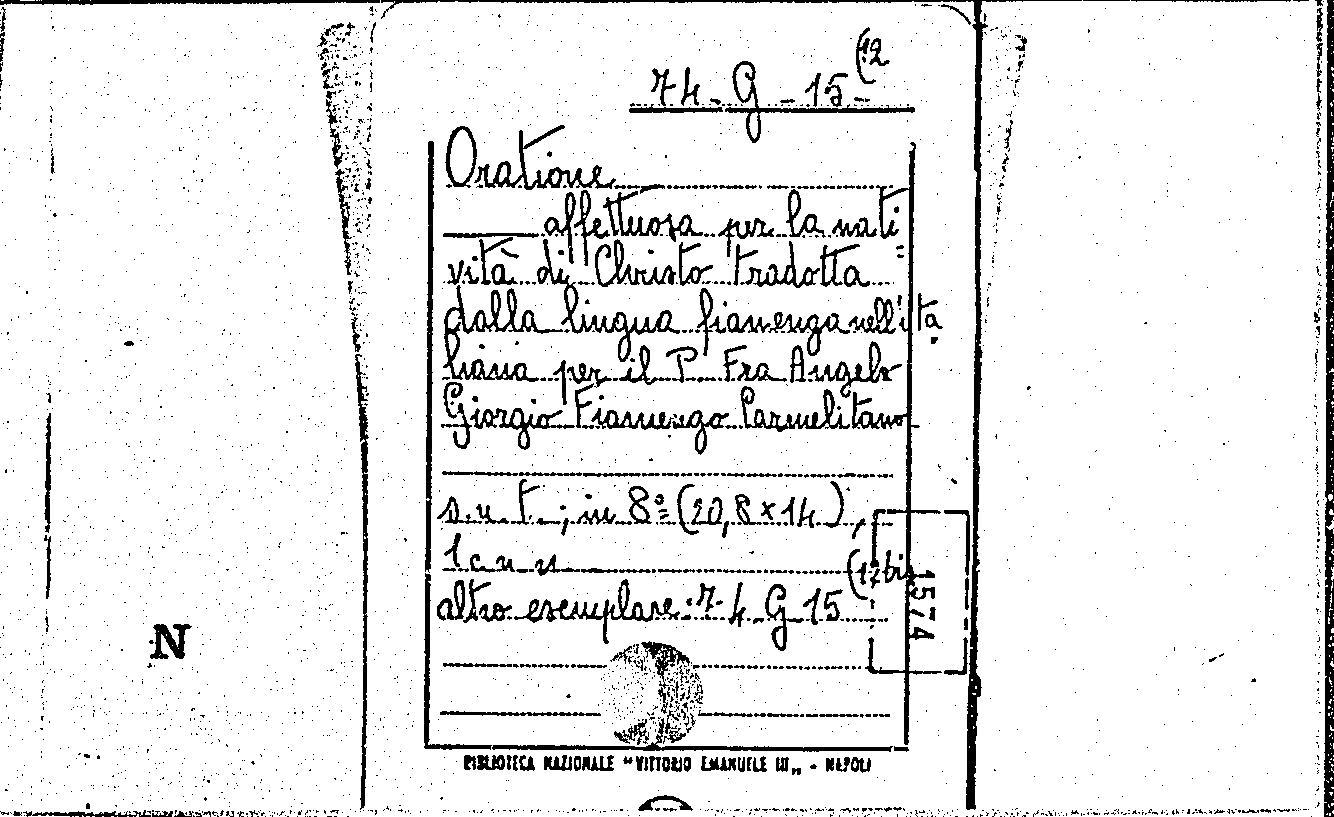 74-G-15(12
Oratione
affettuosa per la nati=
vità di Christo tradotta
dalla lingua fiamenga nell'ita
liana per il P. Fra Angelo
Giorgio Fiamengo Carmelitano
s.n.t.; in 8º (20,8×14),
1 c n n
altro esemplare: 74-G-15(12bis
1574
N
BIBLIOTECA NAZIONALE "VITTORIO EMANUELE III„ - NAPOLI